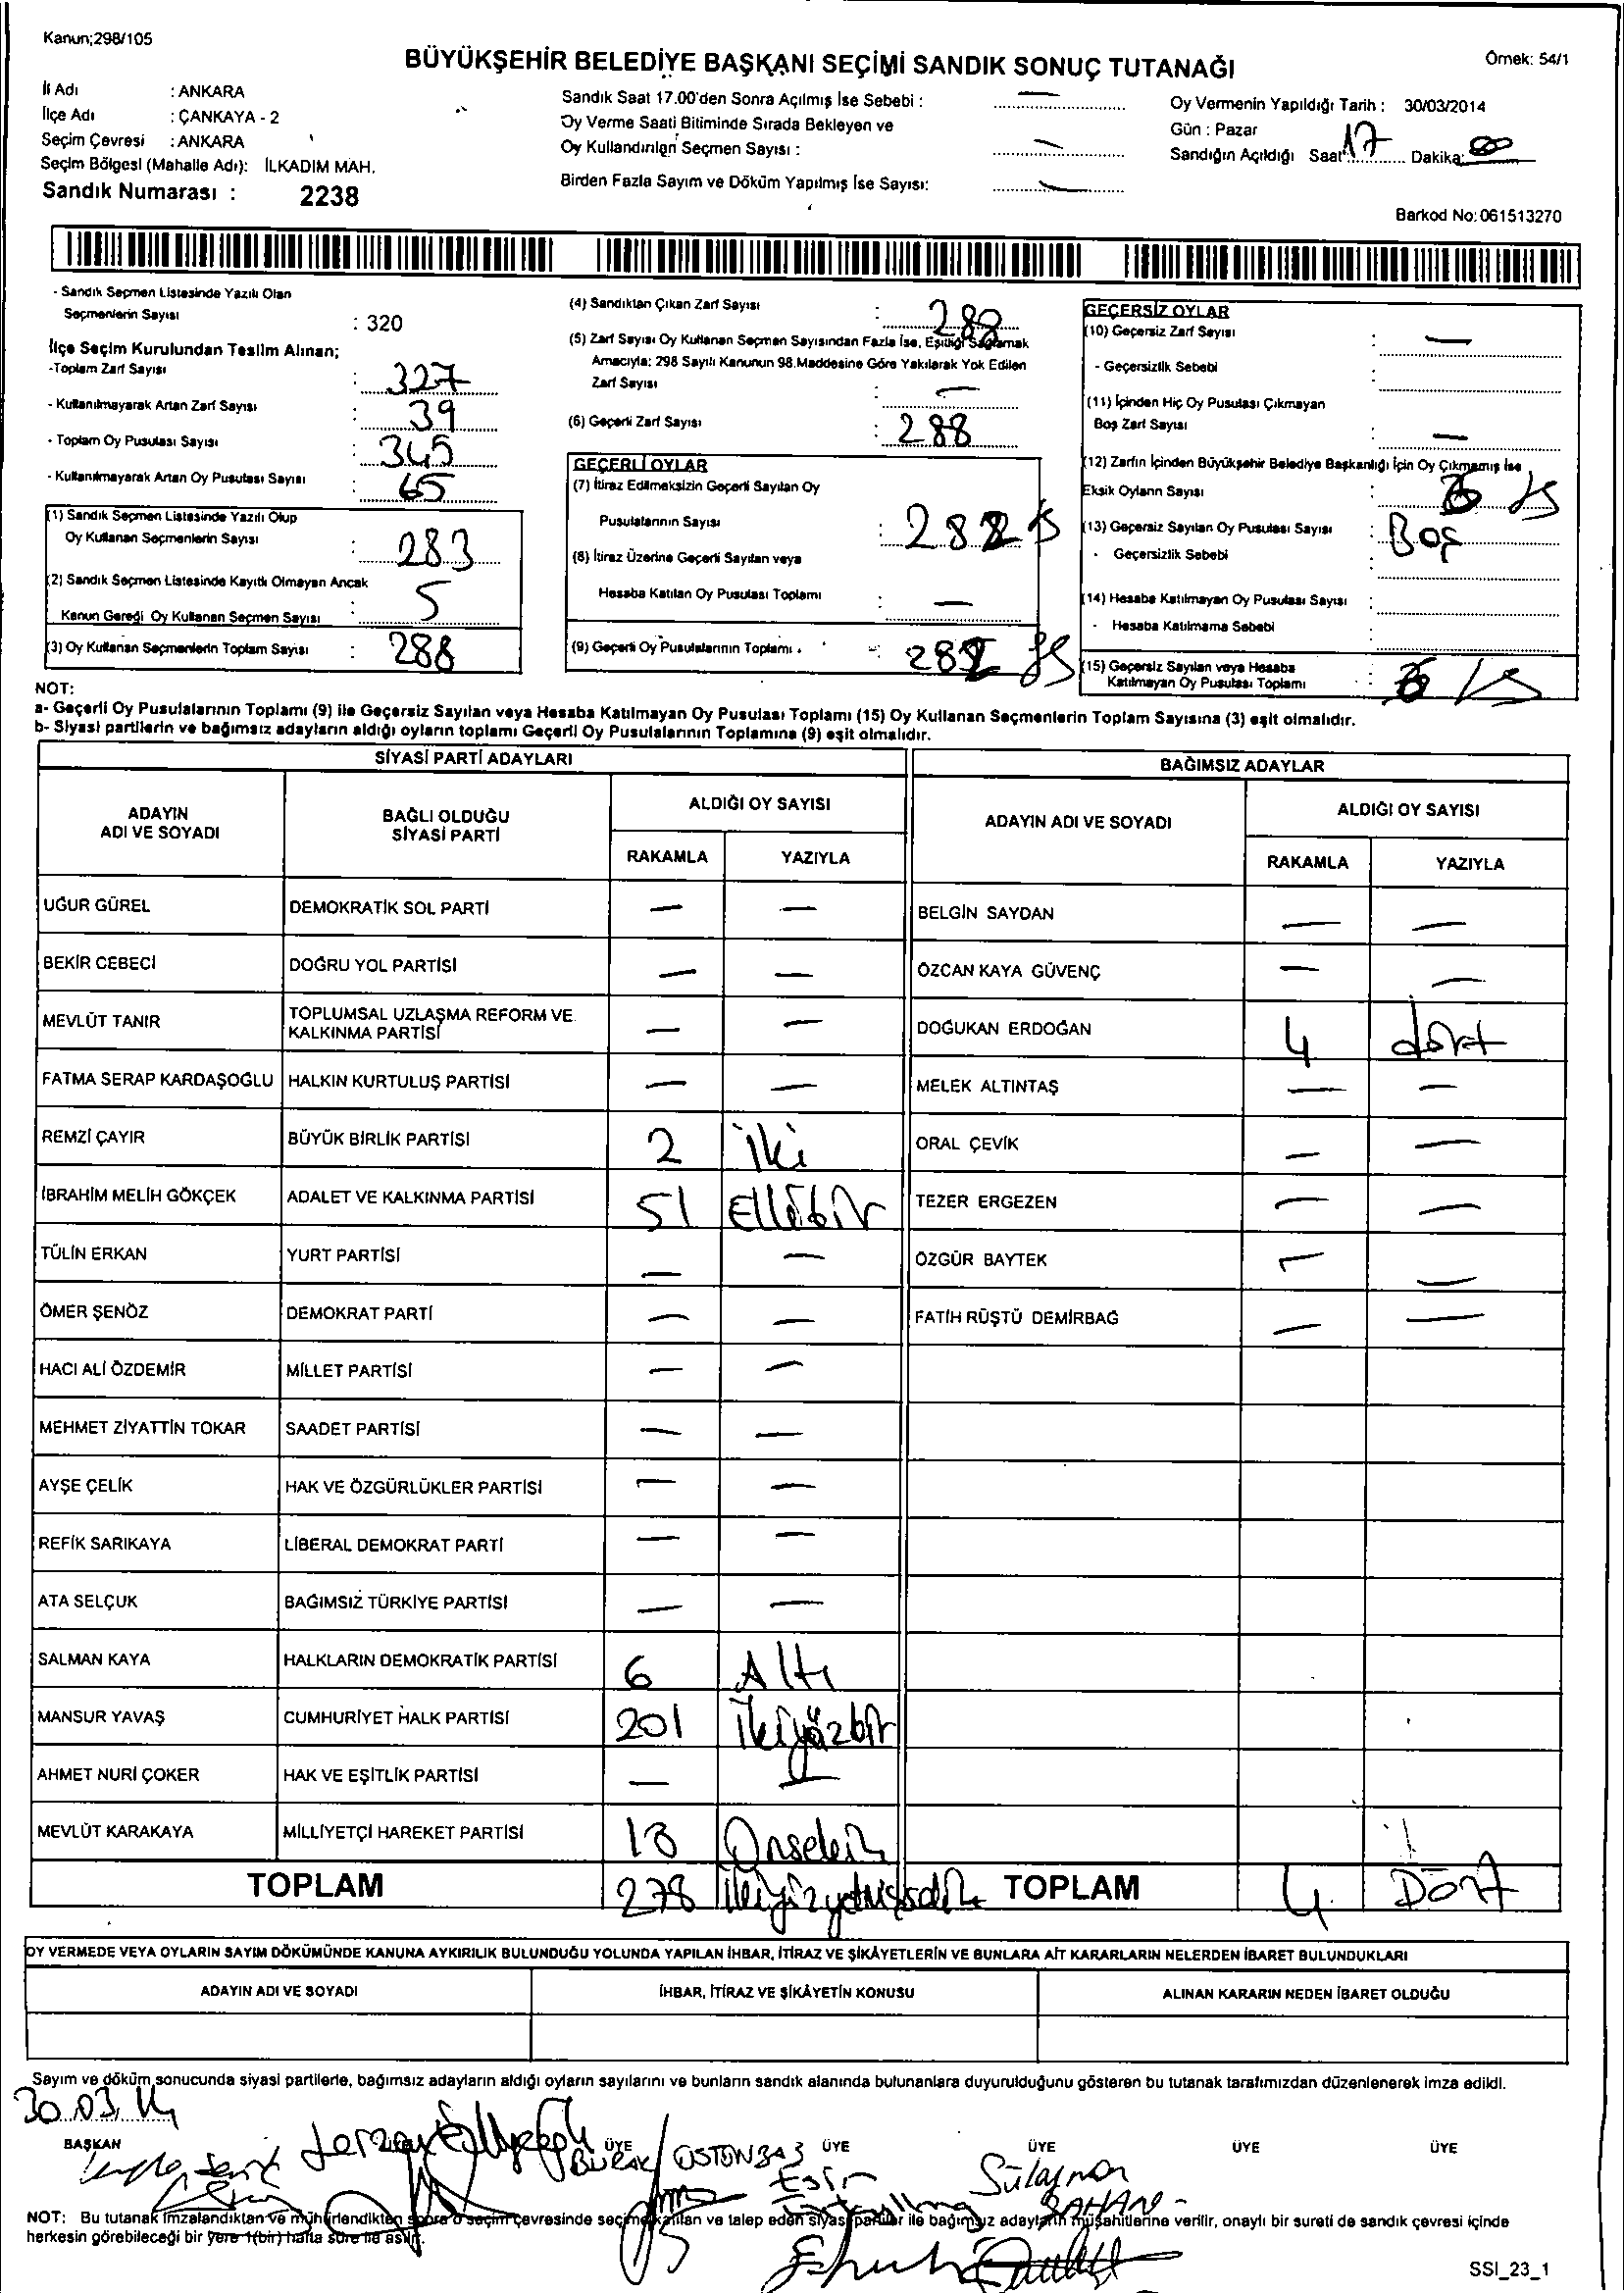 Kanun;298/105
BÜYÜKŞEHİR BELEDİYE BAŞKANI SEÇİMİ SANDIK SONUÇ TUTANAĞI
Örnek: 54/1
İli Adı : ANKARA
İlçe Adı : ÇANKAYA - 2
Seçim Çevresi : ANKARA
Seçim Bölgesi (Mahalle Adı): İLKADIM MAH.
Sandık Numarası : 2238
Sandık Saat 17.00'den Sonra Açılmış İse Sebebi : —
Oy Verme Saati Bitiminde Sırada Bekleyen ve
Oy Kullandırılan Seçmen Sayısı : —
Birden Fazla Sayım ve Döküm Yapılmış İse Sayısı: —
Oy Vermenin Yapıldığı Tarih : 30/03/2014
Gün : Pazar
Sandığın Açıldığı Saat 17 Dakika: 00
Barkod No: 061513270
- Sandık Seçmen Listesinde Yazılı Olan
Seçmenlerin Sayısı : 320
İlçe Seçim Kurulundan Teslim Alınan;
-Toplam Zarf Sayısı : 327
- Kullanılmayarak Artan Zarf Sayısı : 39
- Toplam Oy Pusulası Sayısı : 345
- Kullanılmayarak Artan Oy Pusulası Sayısı : 65
(1) Sandık Seçmen Listesinde Yazılı Olup
Oy Kullanan Seçmenlerin Sayısı : 283
(2) Sandık Seçmen Listesinde Kayıtlı Olmayan Ancak
Kanun Gereği Oy Kullanan Seçmen Sayısı : 5
(3) Oy Kullanan Seçmenlerin Toplam Sayısı : 288
(4) Sandıktan Çıkan Zarf Sayısı : 288
(5) Zarf Sayısı Oy Kullanan Seçmen Sayısından Fazla İse, Eşitliği Sağlamak
Amacıyla; 298 Sayılı Kanunun 98.Maddesine Göre Yakılarak Yok Edilen
Zarf Sayısı : —
(6) Geçerli Zarf Sayısı : 288
GEÇERLİ OYLAR
(7) İtiraz Edilmeksizin Geçerli Sayılan Oy
Pusulalarının Sayısı : 282
(8) İtiraz Üzerine Geçerli Sayılan veya
Hesaba Katılan Oy Pusulası Toplamı : —
(9) Geçerli Oy Pusulalarının Toplamı : 282
GEÇERSİZ OYLAR
(10) Geçersiz Zarf Sayısı : —
- Geçersizlik Sebebi :
(11) İçinden Hiç Oy Pusulası Çıkmayan
Boş Zarf Sayısı : —
(12) Zarfın İçinden Büyükşehir Belediye Başkanlığı İçin Oy Çıkmamış İse
Eksik Oyların Sayısı : 6
(13) Geçersiz Sayılan Oy Pusulası Sayısı : Boş
- Geçersizlik Sebebi :
(14) Hesaba Katılmayan Oy Pusulası Sayısı :
- Hesaba Katılmama Sebebi :
(15) Geçersiz Sayılan veya Hesaba
Katılmayan Oy Pusulası Toplamı : 6
NOT:
a- Geçerli Oy Pusulalarının Toplamı (9) ile Geçersiz Sayılan veya Hesaba Katılmayan Oy Pusulası Toplamı (15) Oy Kullanan Seçmenlerin Toplam Sayısına (3) eşit olmalıdır.
b- Siyasi partilerin ve bağımsız adayların aldığı oyların toplamı Geçerli Oy Pusulalarının Toplamına (9) eşit olmalıdır.
SİYASİ PARTİ ADAYLARI
ADAYIN ADI VE SOYADI
BAĞLI OLDUĞU SİYASİ PARTİ
ALDIĞI OY SAYISI
RAKAMLA YAZIYLA
UĞUR GÜREL DEMOKRATİK SOL PARTİ — —
BEKİR CEBECİ DOĞRU YOL PARTİSİ — —
MEVLÜT TANIR TOPLUMSAL UZLAŞMA REFORM VE KALKINMA PARTİSİ — —
FATMA SERAP KARDAŞOĞLU HALKIN KURTULUŞ PARTİSİ — —
REMZİ ÇAYIR BÜYÜK BİRLİK PARTİSİ 2 İki
İBRAHİM MELİH GÖKÇEK ADALET VE KALKINMA PARTİSİ 51 Ellibir
TÜLİN ERKAN YURT PARTİSİ — —
ÖMER ŞENÖZ DEMOKRAT PARTİ — —
HACI ALİ ÖZDEMİR MİLLET PARTİSİ — —
MEHMET ZİYATTİN TOKAR SAADET PARTİSİ — —
AYŞE ÇELİK HAK VE ÖZGÜRLÜKLER PARTİSİ — —
REFİK SARIKAYA LİBERAL DEMOKRAT PARTİ — —
ATA SELÇUK BAĞIMSIZ TÜRKİYE PARTİSİ — —
SALMAN KAYA HALKLARIN DEMOKRATİK PARTİSİ 6 Altı
MANSUR YAVAŞ CUMHURİYET HALK PARTİSİ 201 İkiyüzbir
AHMET NURİ ÇOKER HAK VE EŞİTLİK PARTİSİ — —
MEVLÜT KARAKAYA MİLLİYETÇİ HAREKET PARTİSİ 18 Onsekiz
TOPLAM 278 İkiyüzyetmişsekiz
BAĞIMSIZ ADAYLAR
ADAYIN ADI VE SOYADI
ALDIĞI OY SAYISI
RAKAMLA YAZIYLA
BELGİN SAYDAN — —
ÖZCAN KAYA GÜVENÇ — —
DOĞUKAN ERDOĞAN 4 dört
MELEK ALTINTAŞ — —
ORAL ÇEVİK — —
TEZER ERGEZEN — —
ÖZGÜR BAYTEK — —
FATİH RÜŞTÜ DEMİRBAĞ — —
TOPLAM 4 Dört
OY VERMEDE VEYA OYLARIN SAYIM DÖKÜMÜNDE KANUNA AYKIRILIK BULUNDUĞU YOLUNDA YAPILAN İHBAR, İTİRAZ VE ŞİKÂYETLERİN VE BUNLARA AİT KARARLARIN NELERDEN İBARET BULUNDUKLARI
ADAYIN ADI VE SOYADI İHBAR, İTİRAZ VE ŞİKÂYETİN KONUSU ALINAN KARARIN NEDEN İBARET OLDUĞU
Sayım ve döküm sonucunda siyasi partilerle, bağımsız adayların aldığı oyların sayılarını ve bunların sandık alanında bulunanlara duyurulduğunu gösteren bu tutanak tarafımızdan düzenlenerek imza edildi.
30.03.14
BAŞKAN ÜYE ÜYE ÜYE ÜYE ÜYE
BURAK ÜSTÜNBAŞ
Süleyman ŞAHAN
NOT: Bu tutanak imzalandıktan ve mühürlendikten sonra o seçim çevresinde seçime katılan ve talep eden siyasi partiler ile bağımsız adayların müşahitlerine verilir, onaylı bir sureti de sandık çevresi içinde
herkesin görebileceği bir yere 1(bir) hafta süre ile asılır.
SSI_23_1